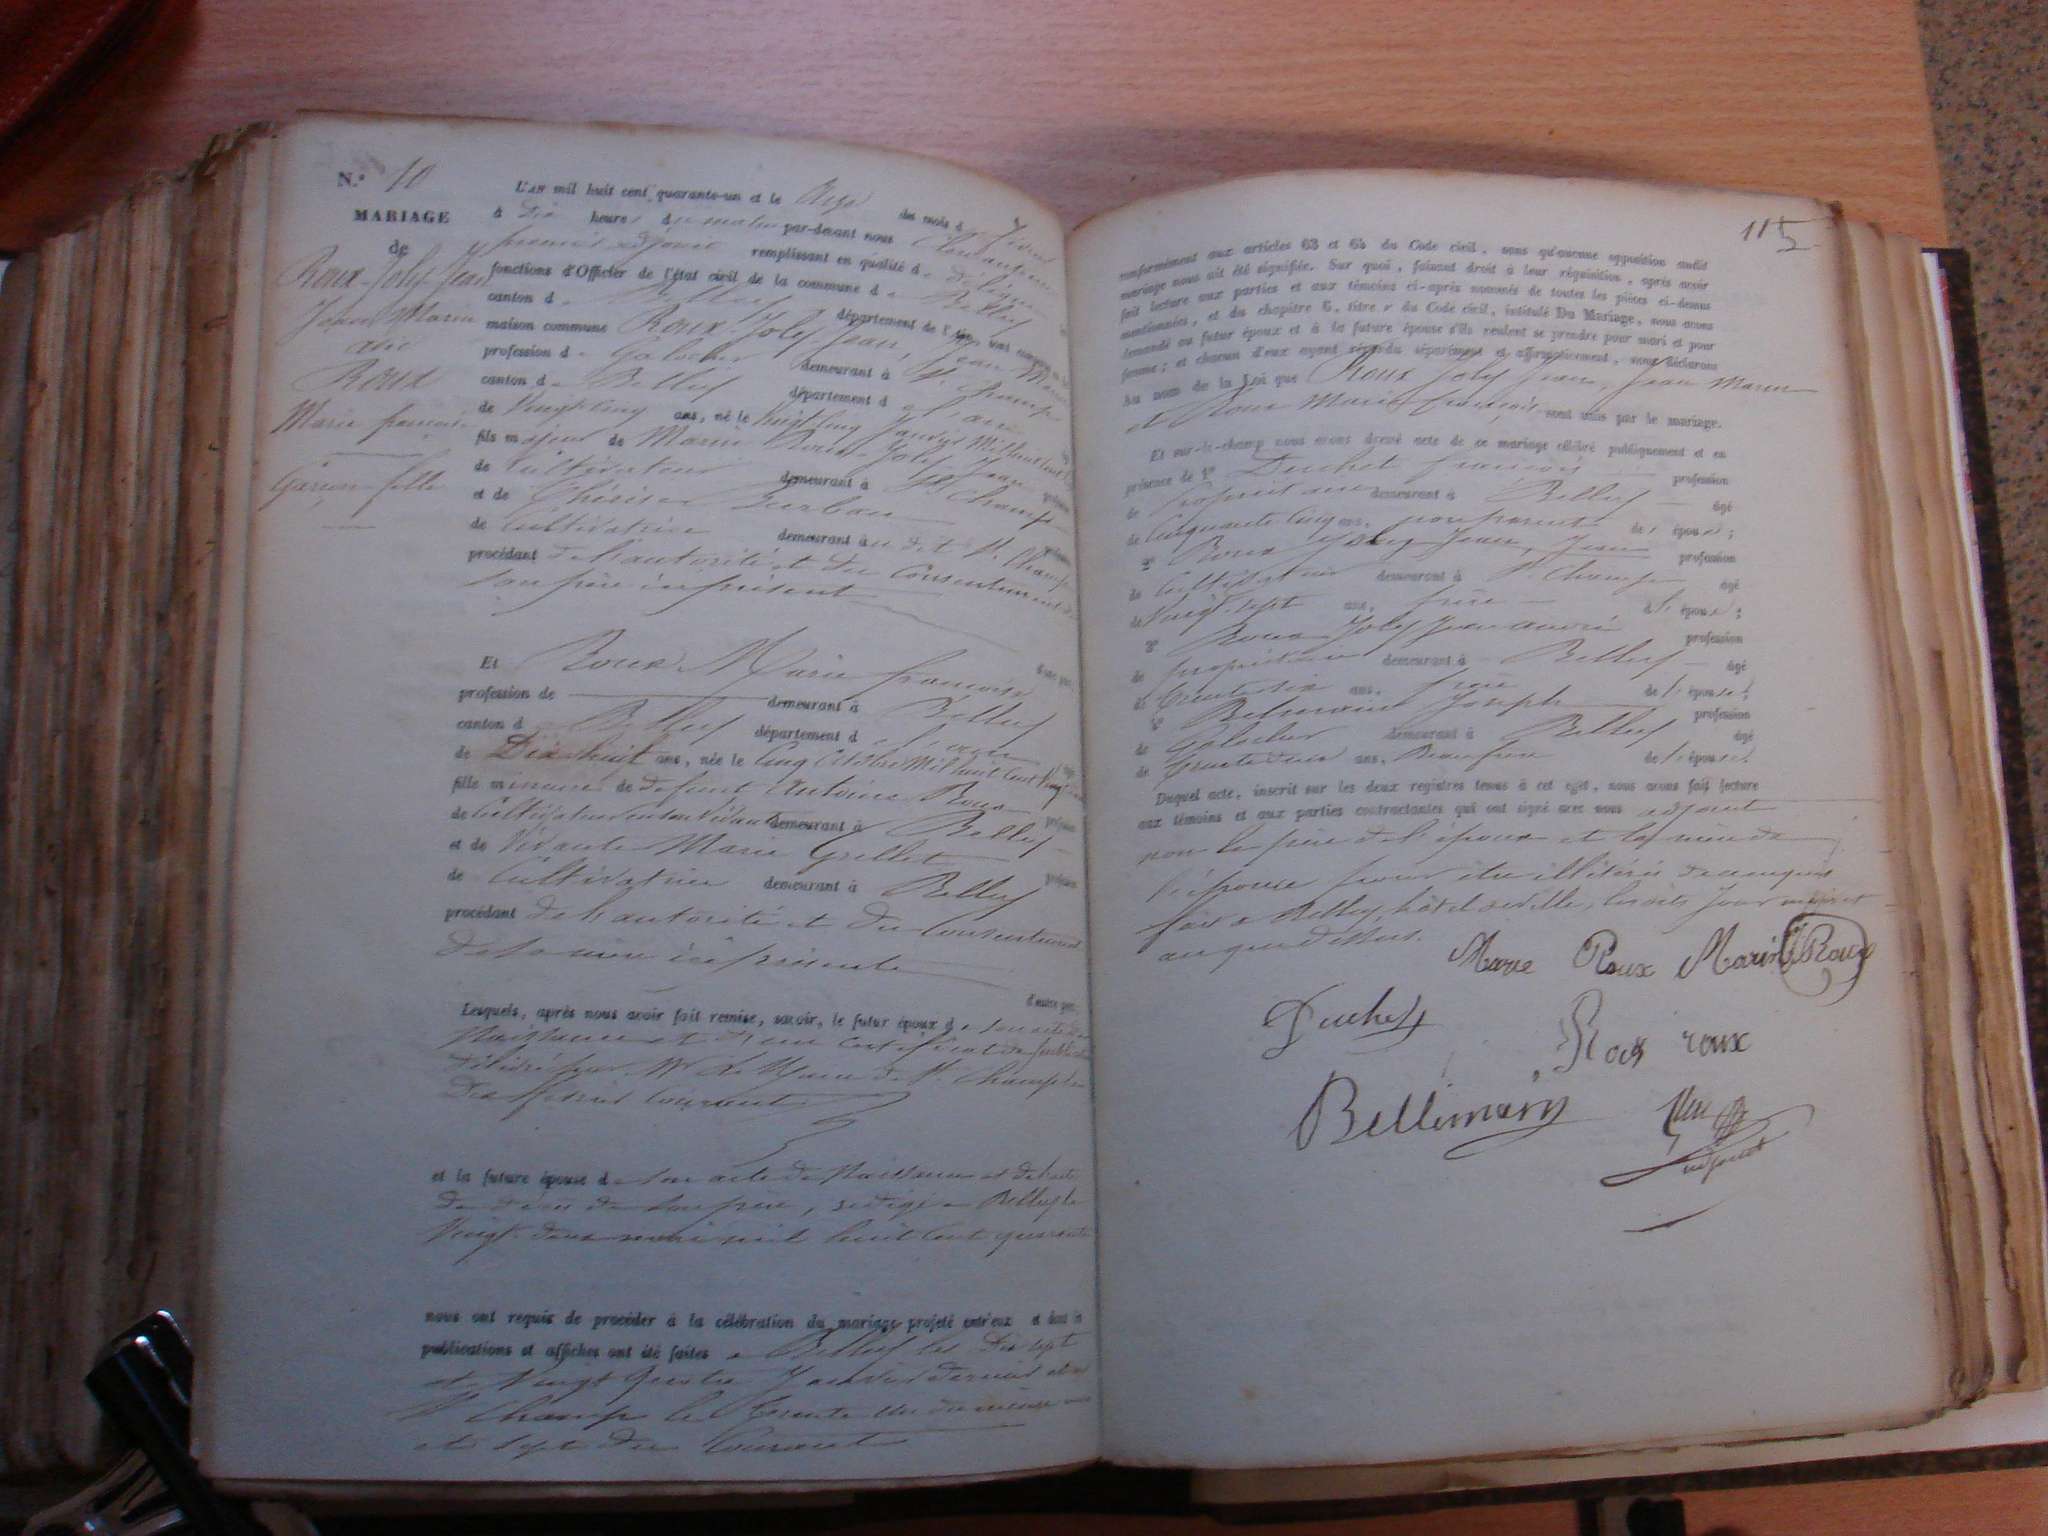 N.º 10
MARIAGE
de
Roux-Joly Jean
Jean Marin
Roux
Marie françoise
Garçon fille
L'AN mil huit cent quarante-un et le onze du mois d
à Dix heures du matin par-devant nous
premier adjoint remplissant en qualité de
fonctions d'Officier de l'état civil de la commune de Belley
canton de Belley département de l'Ain, sont comparus en la
maison commune Roux-Joly Jean, Jean Marin
profession de Galochier demeurant à St Champ
canton de Belley département de l'ain
de vingt cinq ans, né le vingt cinq Janvier Mil huit cent
fils majeur de Marin Roux-Joly Jean
de Cultivateur demeurant à St Champ
et de
de Cultivatrice demeurant au dit St Champ
procédant de l'autorité et du Consentement de
son père ici présent
Et Roux Marie françoise d'une part,
profession de demeurant à Belley
canton de Belley département de l'ain
de Dix huit ans, née le Cinq Octobre Mil huit cent vingt
fille mineure de defunt Antoine Roux
de Cultivateur en son vivant demeurant à Belley
et de Vivante Marie Grillet
de Cultivatrice demeurant à Belley
procédant de l'autorité et du Consentement
de sa mère ici présente
d'autre part
Lesquels, après nous avoir fait remise, savoir, le futur époux de son acte de
Naissance et d'un certificat de publication
délivré par Mr Le Maire de St Champ le
Dix février Courant
et la future épouse de son acte de Naissance et de l'acte
de décès de son père, rédigé à Belley le
Vingt-deux mil huit cent quarante
nous ont requis de procéder à la célébration du mariage projeté entr'eux et dont les
publications et affiches ont été faites à Belley les Dix sept
et Vingt Quatre Janvier dernier et à
St Champ le Trente un du même
et sept du Courant
115
conformément aux articles 63 et 64 du Code civil, sans qu'aucune opposition audit
mariage nous ait été signifiée. Sur quoi, faisant droit à leur réquisition, après avoir
fait lecture aux parties et aux témoins ci-après nommés de toutes les pièces ci-dessus
mentionnées, et du chapitre 6, titre v du Code civil, intitulé Du Mariage, nous avons
demandé au futur époux et à la future épouse s'ils veulent se prendre pour mari et pour
femme; et chacun d'eux ayant répondu séparément et affirmativement, nous déclarons
Au nom de la Loi que Roux Joly Jean, Jean Marin
et Roux Marie françoise sont unis par le mariage.
Et sur-le-champ nous avons dressé acte de ce mariage célébré publiquement et en
présence de 1º Duchet françois profession
de propriétaire demeurant à Belley âgé
de Cinquante Cinq ans, non parent de l'épouse;
2º Roux Joly Jean, Jean profession
de Cultivateur demeurant à St Champ âgé
de Vingt sept ans, frère de l'époux;
3º Roux Joly Jean André profession
de propriétaire demeurant à Belley âgé
de Trente six ans, frère de l'époux;
4º Joseph profession
de Galochier demeurant à Belley âgé
de Trente deux ans, Beau frère de l'épouse.
Duquel acte, inscrit sur les deux registres tenus à cet eget, nous avons fait lecture
aux témoins et aux parties contractantes qui ont signé avec nous adjoint
non le père de l'époux et la mère de
l'épouse pour être illétérés de ce enquis
fait à Belley, hôtel de ville, lesdits Jour mois et
an que dessus.
Marie Roux Marin Roux
Duchet
Roux roux
Bellemain
adjoint